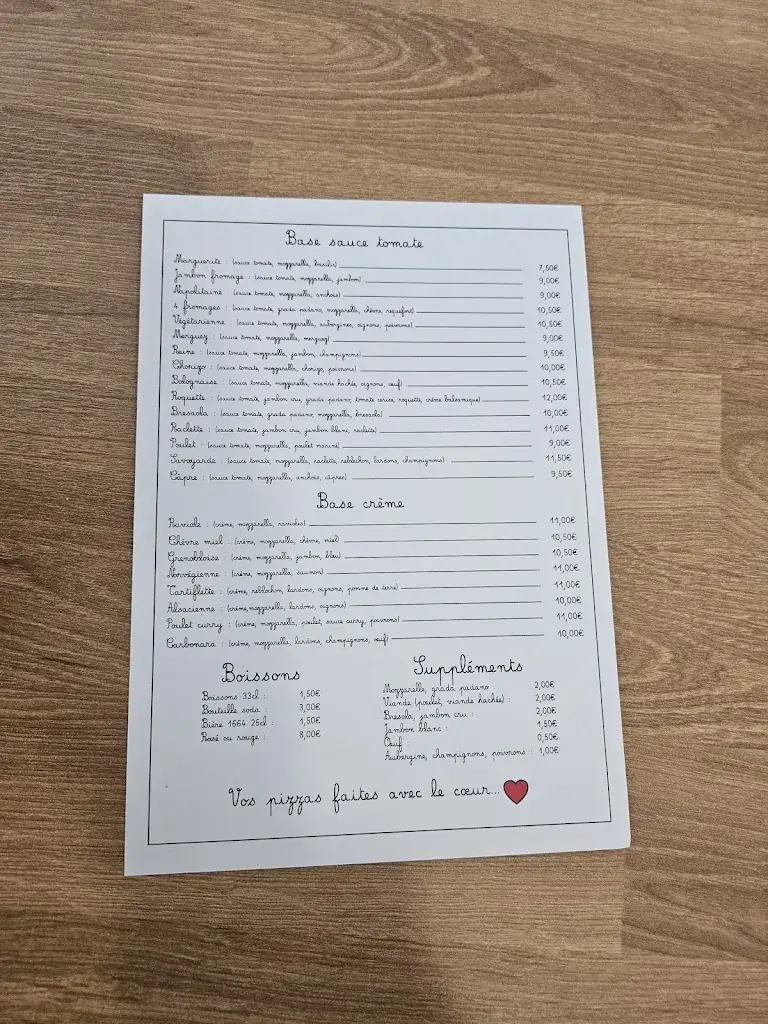 Base sauce tomate
Marguerite : (sauce tomate, mozzarella, basilic) 7,50€
Jambon fromage : (sauce tomate, mozzarella, jambon) 9,00€
Napolitaine : (sauce tomate, mozzarella, anchois) 9,00€
4 fromages : (sauce tomate, grada padano, mozzarella, chèvre, roquefort) 10,50€
Végétarienne : (sauce tomate, mozzarella, aubergines, oignons, poivrons) 10,50€
Merguez : (sauce tomate, mozzarella, merguez) 9,00€
Reine : (sauce tomate, mozzarella, jambon, champignons) 9,50€
Chorizo : (sauce tomate, mozzarella, chorizo, poivrons) 10,00€
Bolognaise : (sauce tomate, mozzarella, viande hachée, oignons, œuf) 10,50€
Roquette : (sauce tomate, jambon cru, grada padano, tomate cerise, roquette, crème balsamique) 12,00€
Bresaola : (sauce tomate, grada padano, mozzarella, bresaola) 10,00€
Raclette : (sauce tomate, jambon cru, jambon blanc, raclette) 11,00€
Poulet : (sauce tomate, mozzarella, poulet mariné) 9,00€
Savoyarde : (sauce tomate, mozzarella, raclette, reblochon, lardons, champignons) 11,50€
Câpre : (sauce tomate, mozzarella, anchois, câpres) 9,50€
Base crème
Raviole : (crème, mozzarella, ravioles) 11,00€
Chèvre miel : (crème, mozzarella, chèvre, miel) 10,50€
Grenobloise : (crème, mozzarella, jambon, bleu) 10,50€
Norvégienne : (crème, mozzarella, saumon) 11,00€
Tartiflette : (crème, reblochon, lardons, oignons, pomme de terre) 11,00€
Alsacienne : (crème,mozzarella, lardons, oignons) 10,00€
Poulet curry : (crème, mozzarella, poulet, sauce curry, poivrons) 11,00€
Carbonara : (crème, mozzarella, lardons, champignons, œuf) 10,00€
Boissons
Boissons 33cl : 1,50€
Bouteille soda : 3,00€
Bière 1664 25cl : 1,50€
Rosé ou rouge : 8,00€
Suppléments
Mozzarella, grada padano : 2,00€
Viande (poulet, viande hachée) : 2,00€
Bresola, jambon cru : 2,00€
Jambon blanc : 1,50€
Œuf : 0,50€
Aubergine, champignons, poivrons : 1,00€
Vos pizzas faites avec le cœur...